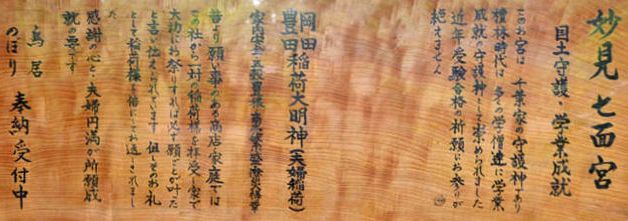 妙見 七面宮
国土守護・学業成就
このお宮は 千葉家の守護神であり
檀林時代は多くの学僧達に学業
成就の守護神として崇められました
近年受験合格の祈願にお参りが
絶えません
岡田稲荷大明神(夫婦稲荷)
豊田
家内安全 五穀豊穣 商売繁盛
昔より願い事のある商店家庭では
この社から対の稲荷様を拝受し家で
大切にお祭りすれば必ず願ごとが叶った
と言い伝えられています 但しそのお札
として稲荷様を倍にしてお返しされまし
た
感謝の心と夫婦円満が所願成
就の要です
鳥居
のぼり 奉納受付中